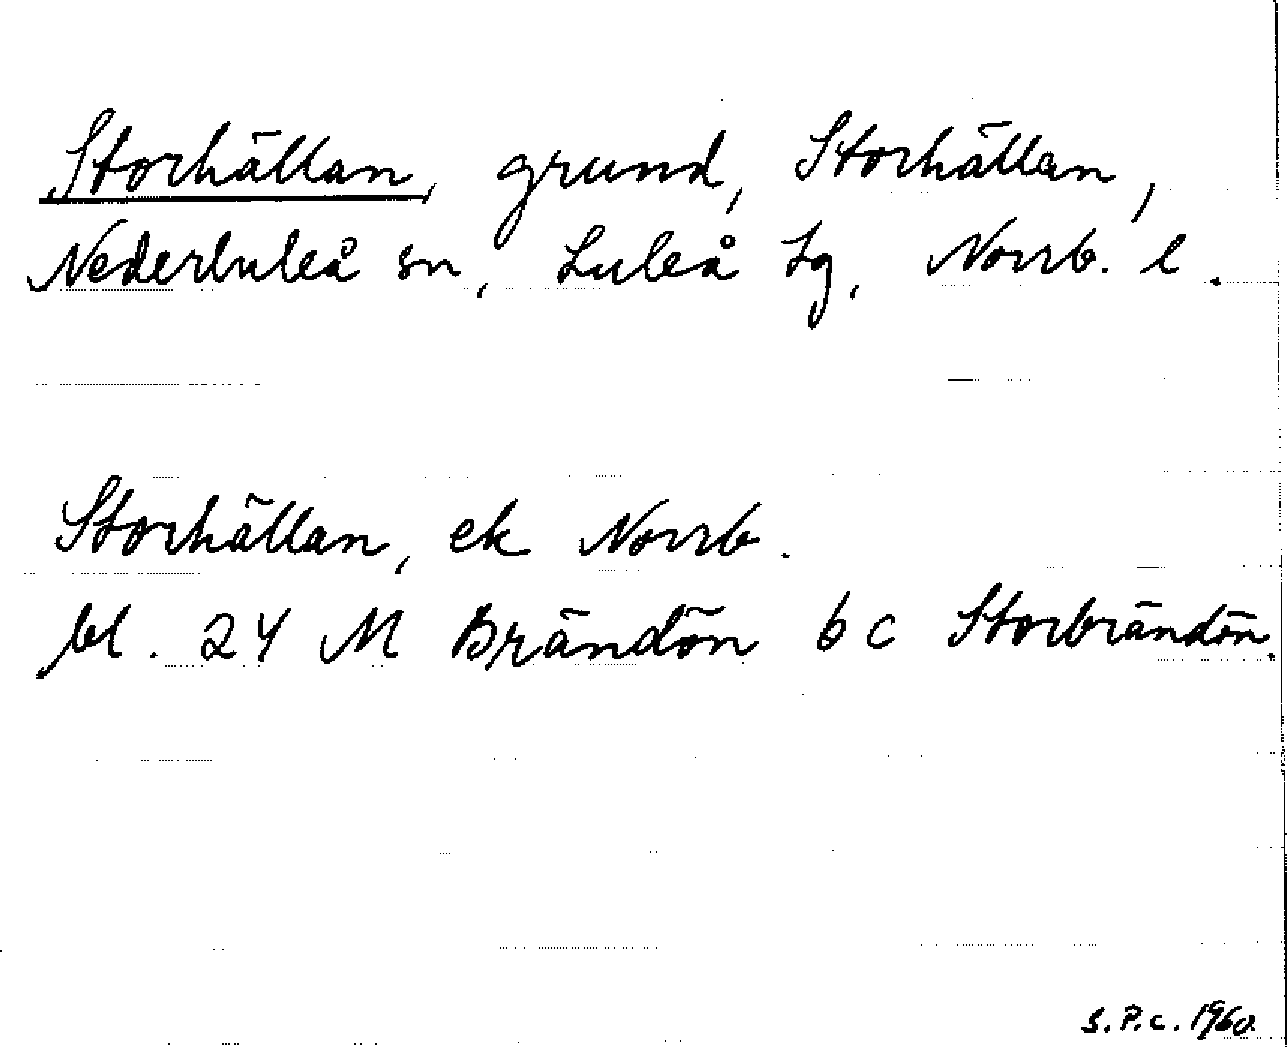 Storhällan, grund, Storhällan,
Nederluleå sn, Luleå tg, Norrb. l.
Storhällan, ek Norrb.
bl. 24 M Brändön 6 c Storbrändön.
S.P.C. 1960.